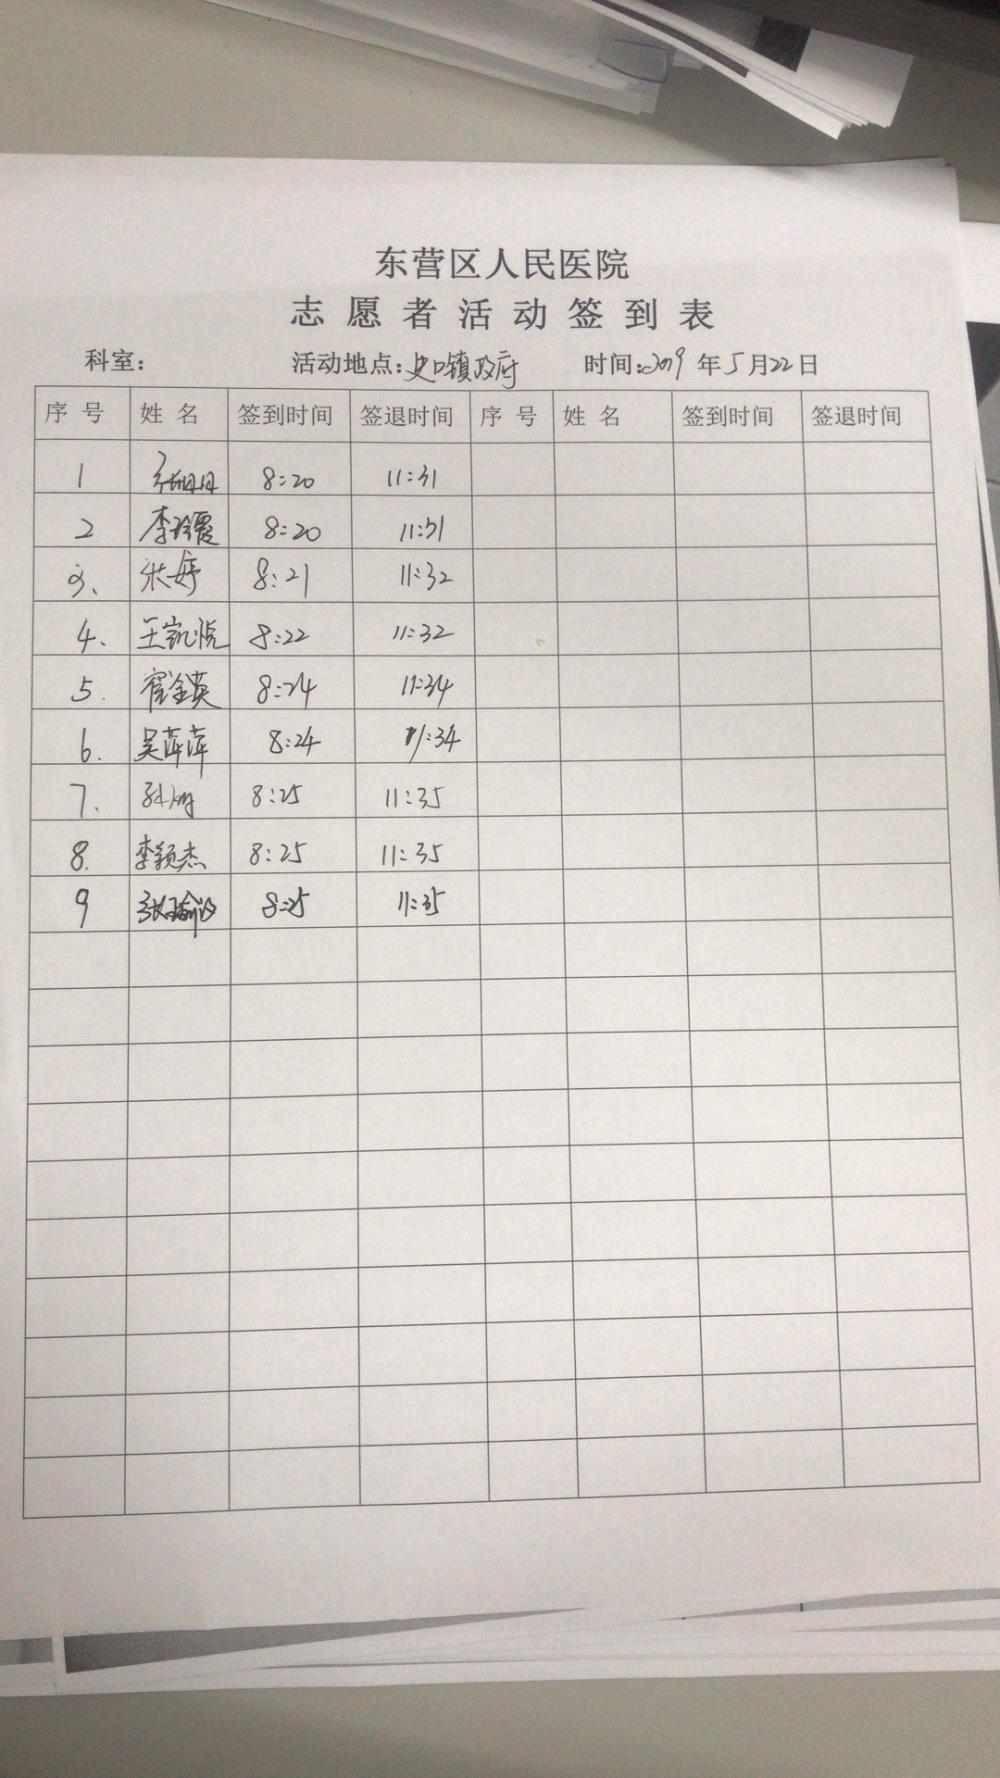 东营区人民医院
志愿者活动签到表
科室： 活动地点：史口镇政府 时间：2019年5月22日
序号 姓名 签到时间 签退时间 序号 姓名 签到时间 签退时间
1 8:20 11:31
2 李玲霞 8:20 11:31
3、 张婷 8:21 11:32
4. 王凯悦 8:22 11:32
5. 崔金英 8:24 11:34
6. 吴萍萍 8:24 11:34
7. 8:25 11:35
8. 李颖杰 8:25 11:35
9 8:25 11:35